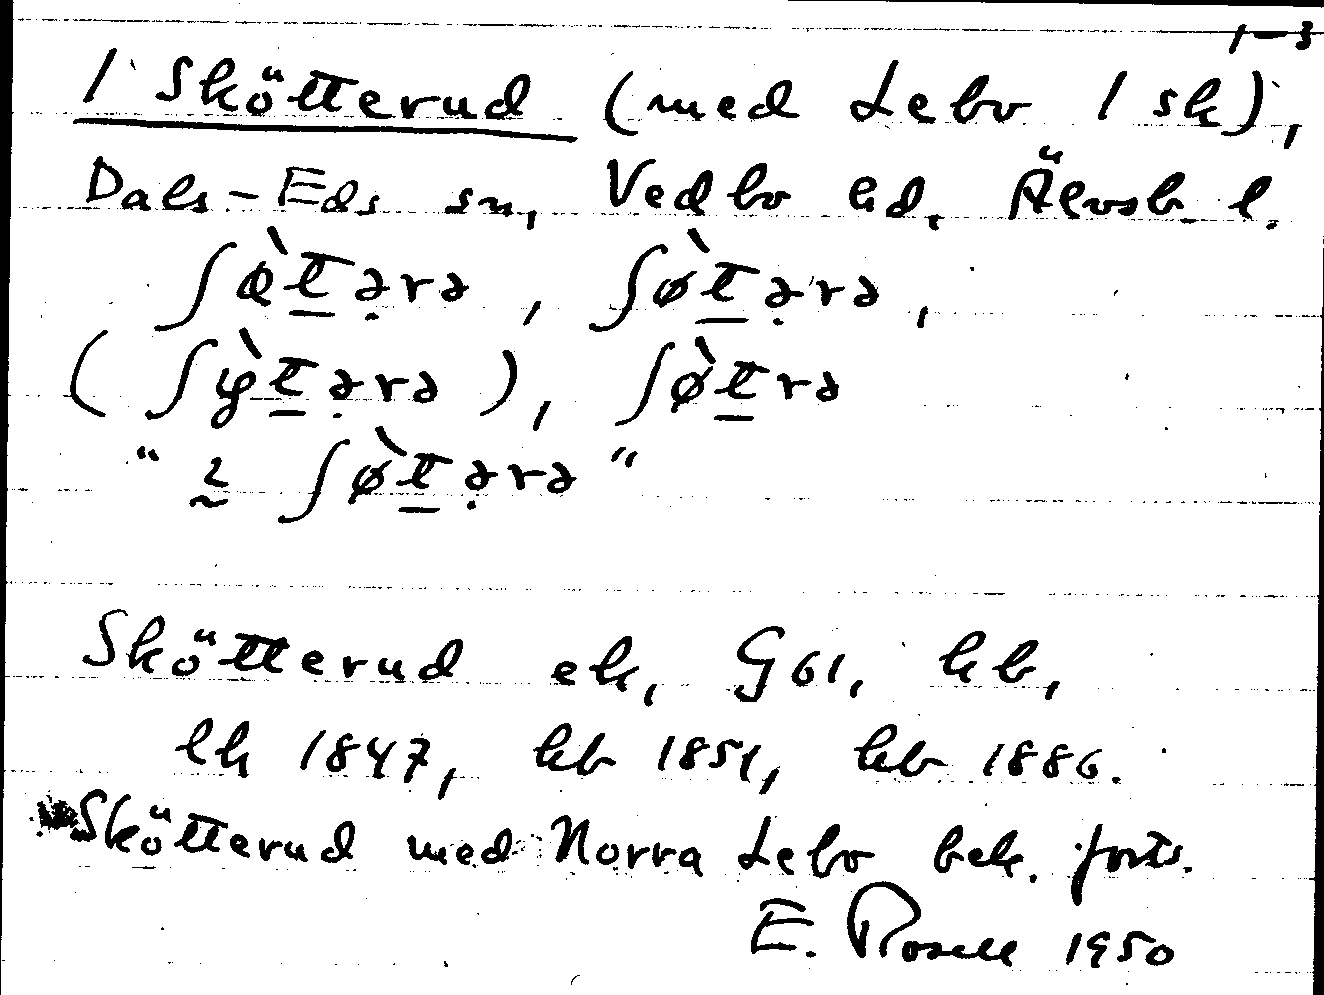 1-3
1 Skötterud (med Lebo 1 sk),
Dals-Eds sn, Vedbo hd, Älvsb. l.
ʃø̀tərə, ʃø̀tərə,
(ʃỳtərə), ʃø̀trə
" 2 ʃø̀tərə "
Skötterud ek, G61, hb,
lk 1847, kb 1851, kb 1886.
Skötterud med Norra Lebo bek. forts.
E. Rosell 1950